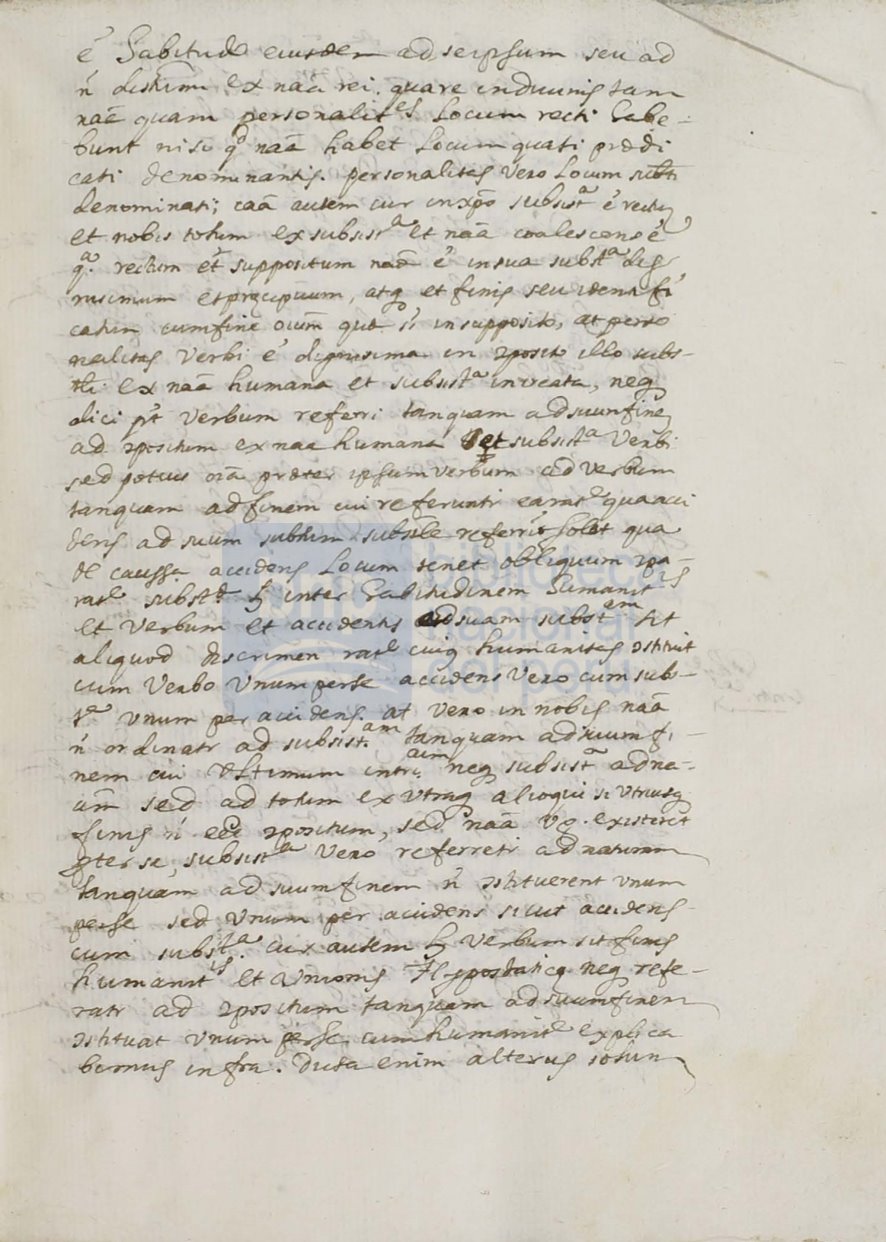 é habitudo eiusdem ad seipsum seu ad
n̄ distinm ex naā rei. quare in divinis tam
naā quam personalites locum recti habe-
bunt nisi qd naā habet locum quasi prædi
cati denominantis. personalitas vero locum subti
denominati; caā autem cur in xpō subsista é rectū
et nobis totum ex subsista et naā coalescens é
qa. rectum et suppositum naæ é in sua substa dig
nissimum et præcipuum, atq et finis seu identifi
catum cum fine oium quæ st in supposito, at perso
nalitas Verbi é dignissima in 2posito illo subs-
tli ex naā humana et subsista increata, neq
dici pt Verbum referri tanquam ad suum finē
ad 2positum ex naā humana et subsista Verbi
sed potius oiā præter ipsum verbum ad verbum
tanquam ad finem cui referuntr eam ratē qua acci
dens ad suum subtum subsle referri solet qua
de caussa accidens locum tenet obliquum 2pa-
rate substæ h inter habitudinem humanitis
et Verbum et accidentis ad suam substem sit
aliquod discrimen rate cuiq humanitas 2stituit
cum Verbo Vnum perse accidens Vero cum subs-
ta Vnum per accidens. at Vero in nobis naā
n̄ ordinatr ad subsistam tanquam ad suum fi-
nem cui Vltimum neq subsista ad na-
am sed ad totum ex Vtraq alioqui si Vtriusq
finis n̄ eēt 2positum, sed naā Vg. existerit
pter se, subsista Vero referretr ad naturam
tanquam ad suum finem n̄ 2stituerent vnum
perse sed Vnum per accidens sicut accidens
cum substa. cur autem h Verbum sit finis
humanitis et Vnionis Hypostaticæ neq refe-
ratr ad 2positum tanquam ad suum finem
2stituat Vnum perse cum humanite explica
bimus infra. Dicta enim alterius solum